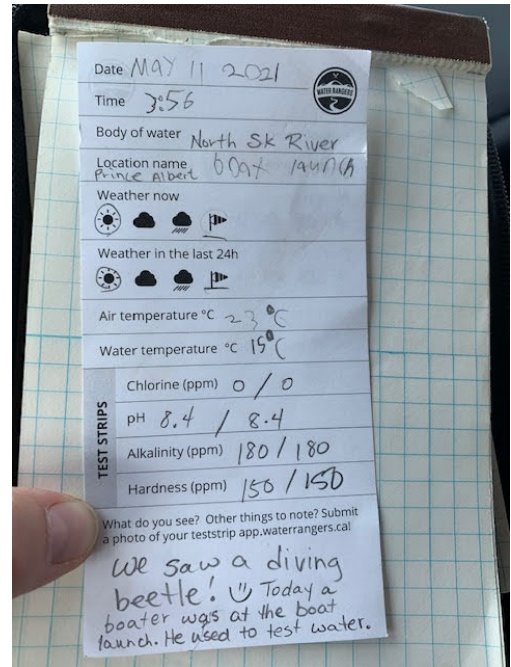 Date MAY 11 2021
WATER RANGERS
Time 3:56
Body of water North Sk River
Location name boat launch
Prince Albert
Weather now
Weather in the last 24h
Air temperature °C 23°C
Water temperature °C 15°C
TEST STRIPS
Chlorine (ppm) 0 / 0
pH 8.4 / 8.4
Alkalinity (ppm) 180 / 180
Hardness (ppm) 150 / 150
What do you see? Other things to note? Submit
a photo of your teststrip app.waterrangers.ca!
We saw a diving
beetle! Today a
boater was at the boat
launch. He used to test water.